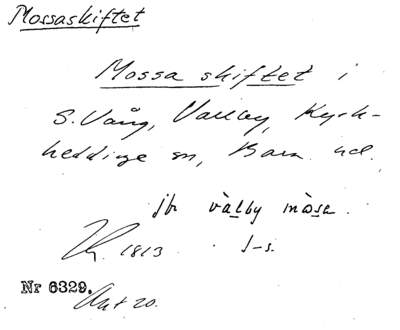 Mossaskiftet
Mossa skiftet i
S. Vång, Vallby, Kyrk-
heddinge sn, Bara hd.
jfr vàlby mòsa.
1813 J-s.
Nr 6329.
Akt 20.